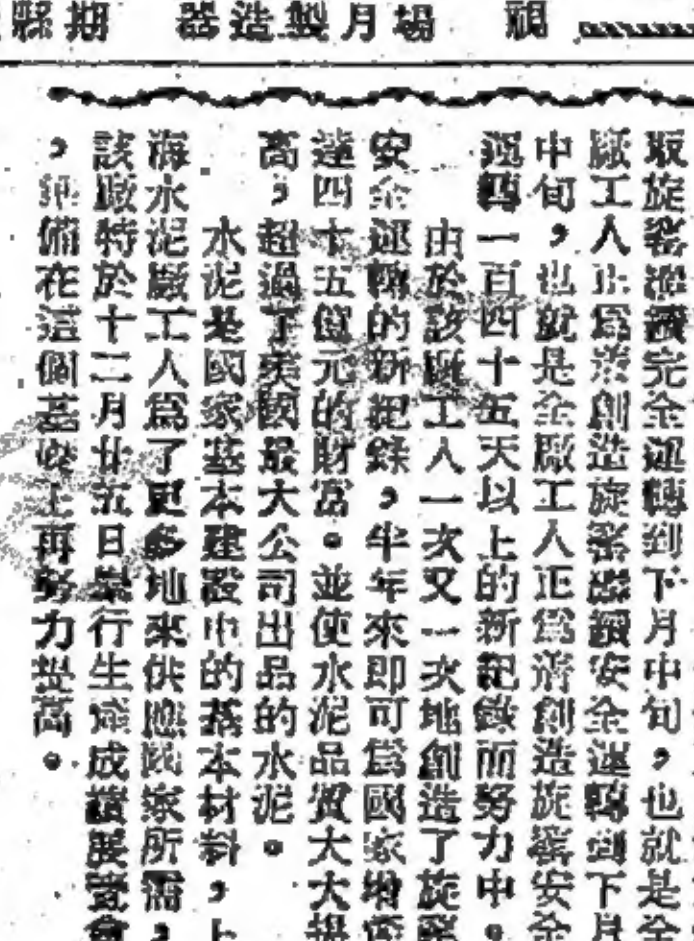 縣期 器造製月場 視
取旋窰連續完全運轉到下月中旬,也就是全
廠工人正爲着創造旋窰連續安全運轉到下月
中旬,也就是全廠工人正爲着創造旋窰安全
運轉一百四十五天以上的新紀錄而努力中。
由於該廠工人一次又一次地創造了旋窰
安全運轉的新紀錄,半年來即可爲國家增產
達四十五億元的財富。並使水泥品質大大提
高,超過了美國最大公司出品的水泥。
水泥是國家基本建設中的基本材料,上
海水泥廠工人爲了更多地來供應國家所需,
該廠特於十二月廿五日舉行生產成績展覽會
,準備在這個基礎上再努力提高。